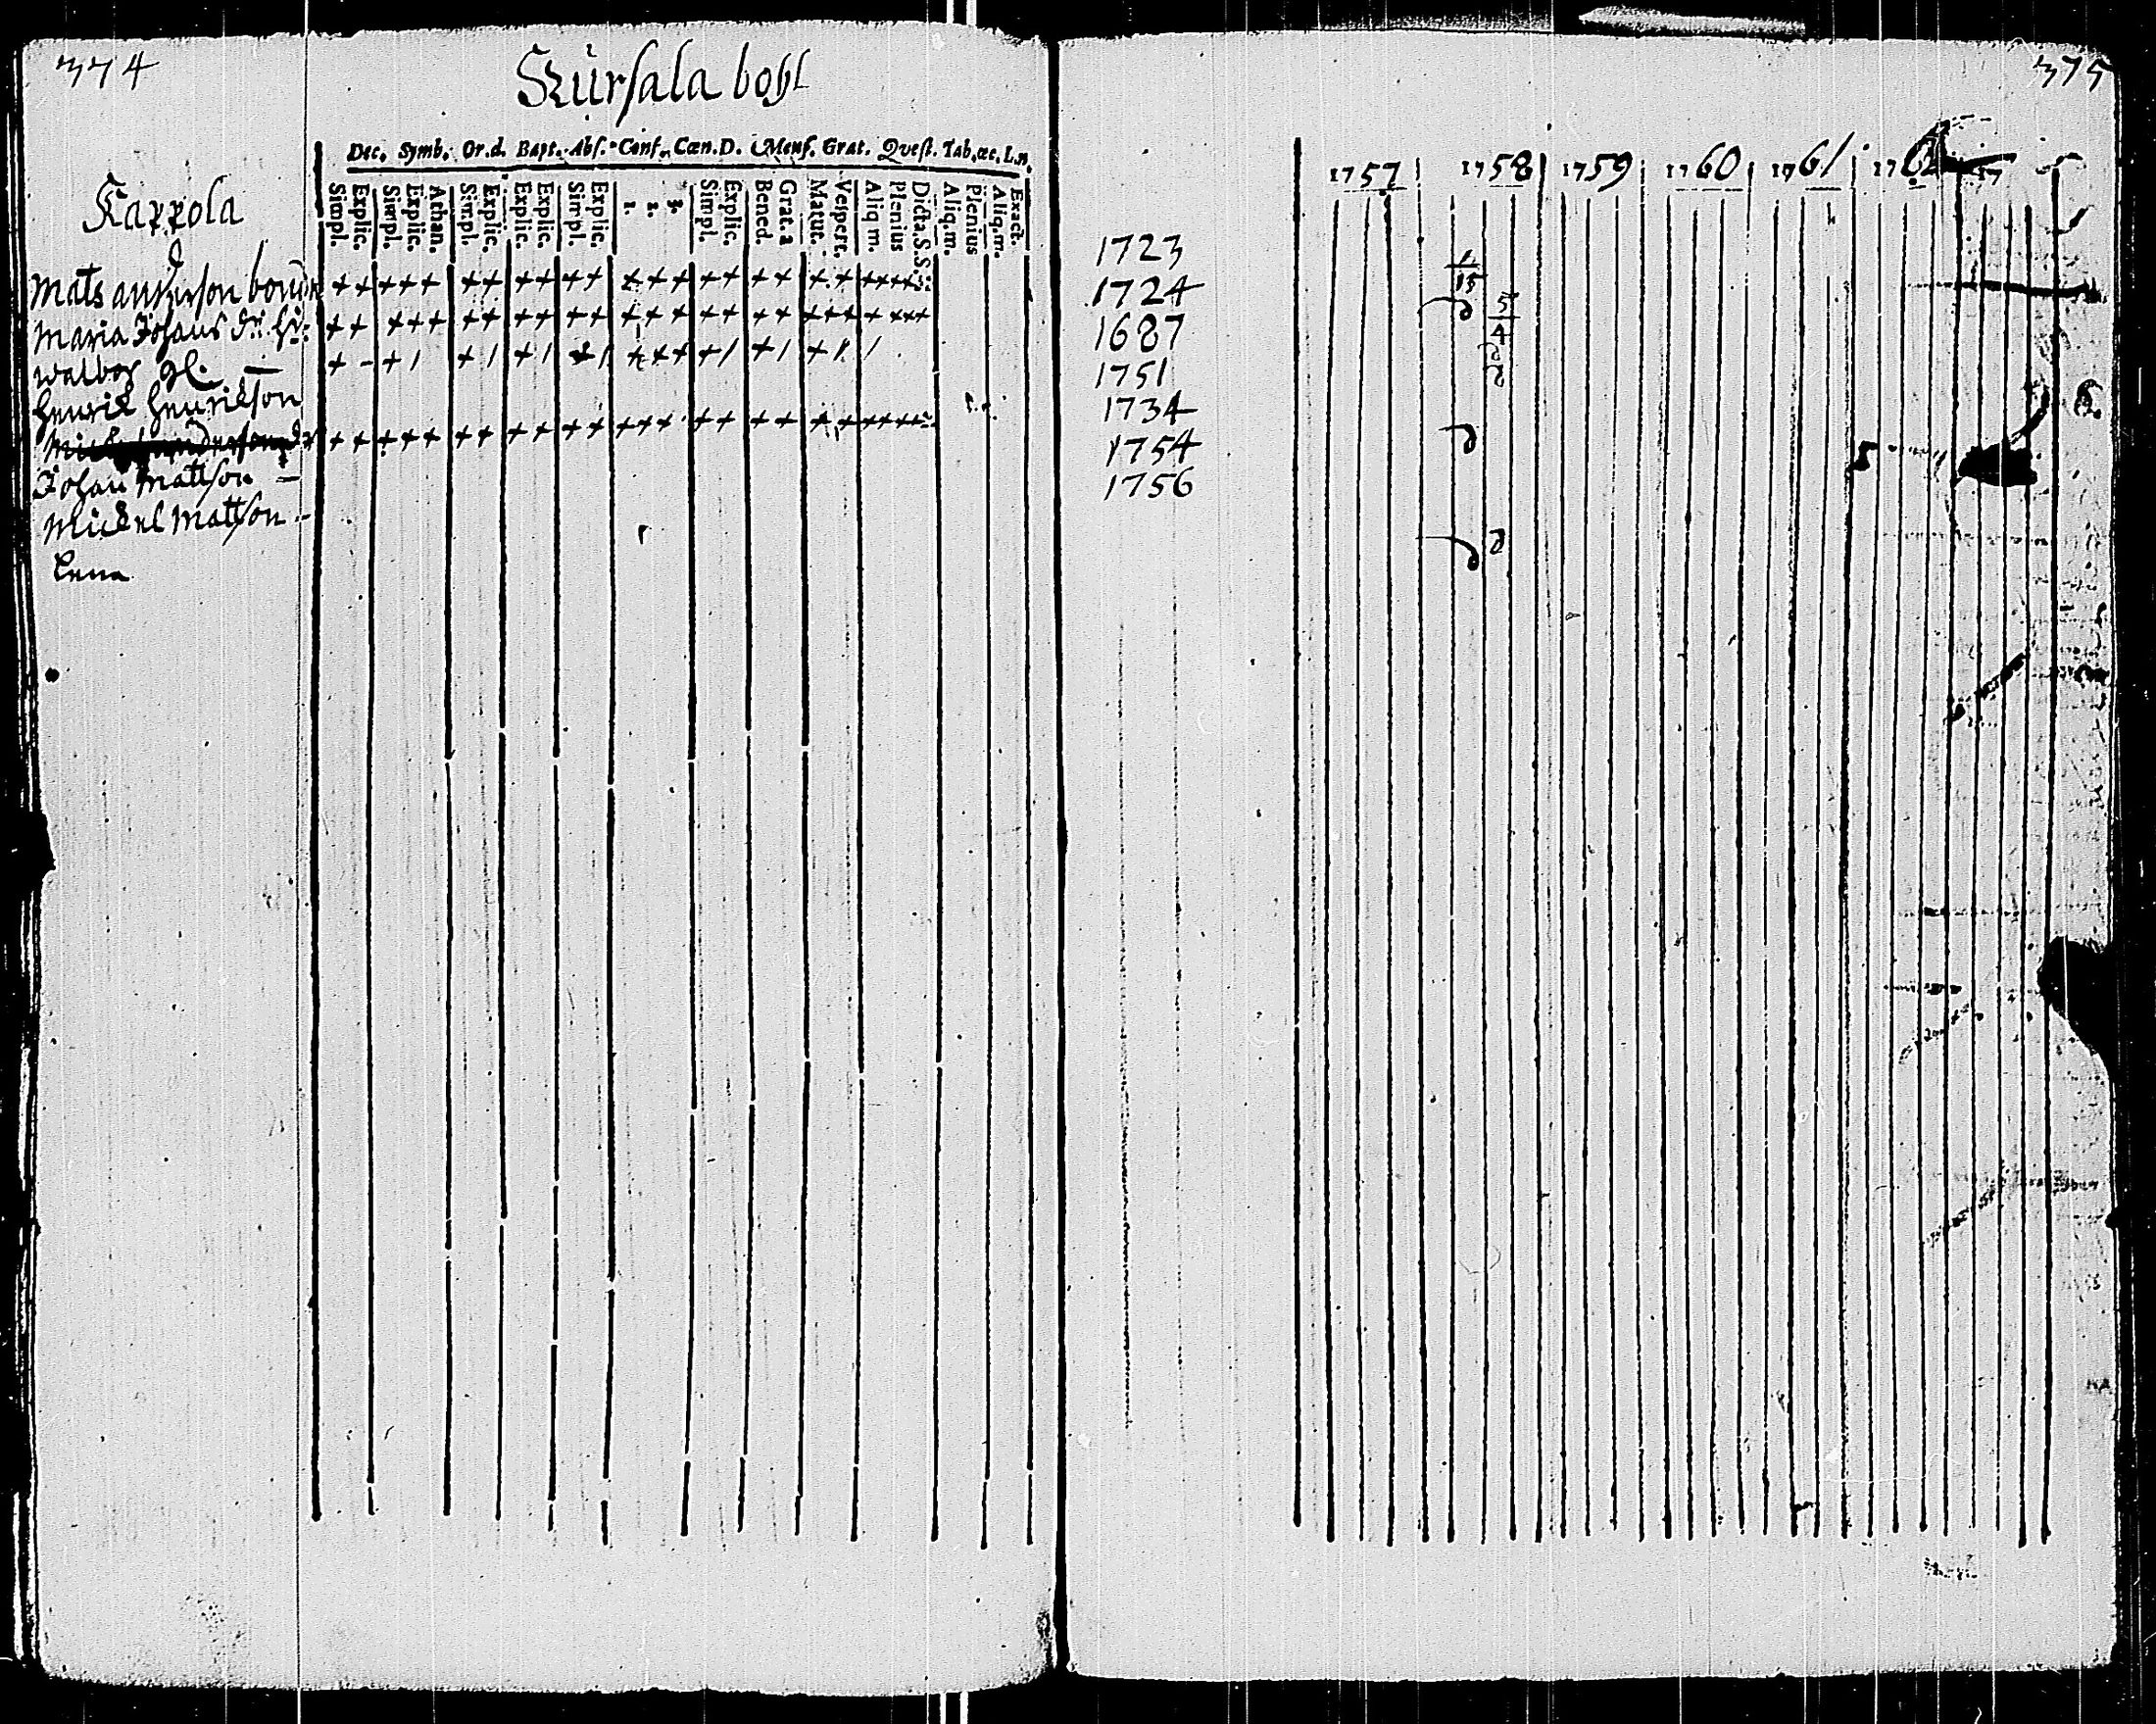 374
Kursala bohl
Dec. Symb. Or.d. Bapt. Abs. Conf. Cœn.D. Mens. Grat. Quest. Tab.œc. L.n.
Kappola
Simpl. Explic. Simpl. Explic. Athan. Simpl. Explic. Explic. Explic. Simpl. Explic. 1. 2. 3. Simpl. Explic. Bened. Grat.a Matut. Vespert. Aliq.m. Plenius Dicta.S.S. Aliq.m. Plenius Aliq.m. Exact.
Mats anderson bonde
Maria Johans dr. hu:
walbor
henrik henrikson
Johan Mattson –
Mickel Mattson –
Lena
375
1757 1758 1759 1760 1761
1723
1724
1687
1751
1734
1754
1756
1/15
5/4